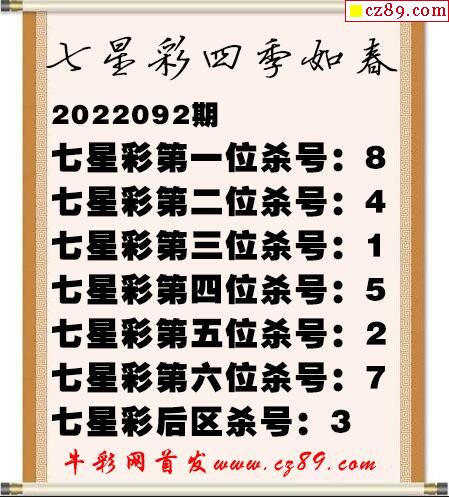 cz89.com
七星彩四季如春
2022092期
七星彩第一位杀号：8
七星彩第二位杀号：4
七星彩第三位杀号：1
七星彩第四位杀号：5
七星彩第五位杀号：2
七星彩第六位杀号：7
七星彩后区杀号：3
牛彩网首发www.cz89.com